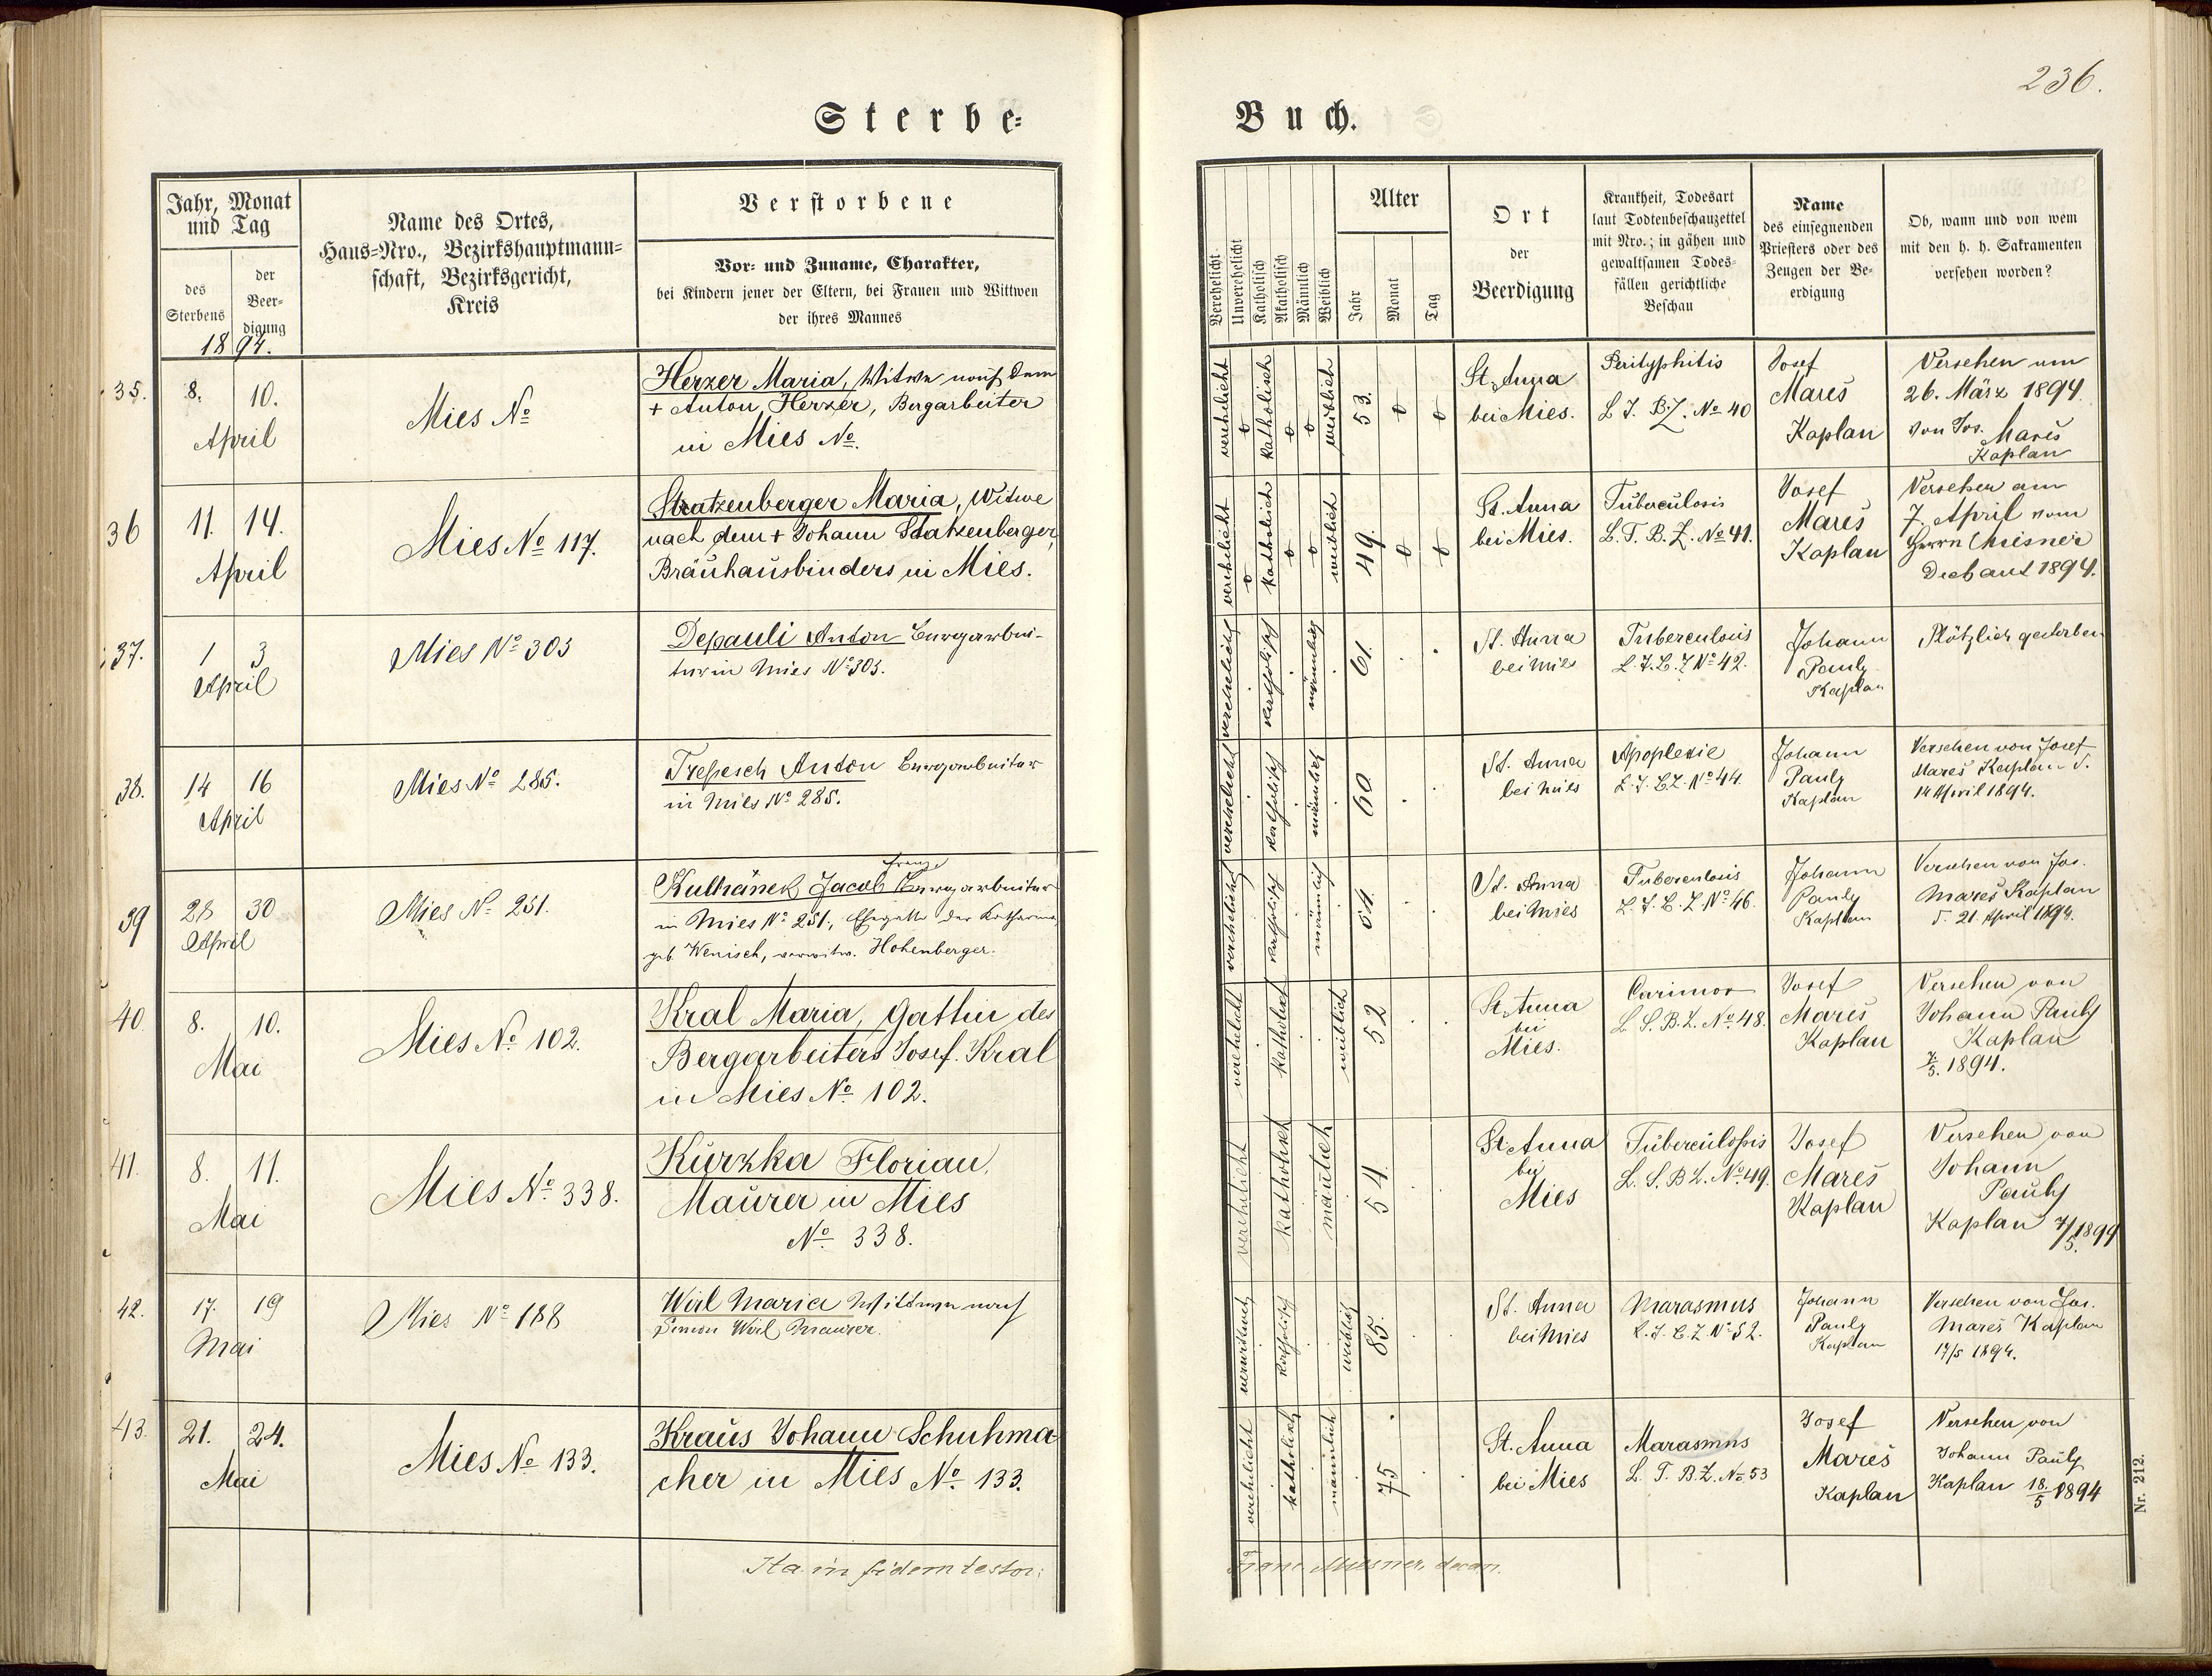 236.
Sterbe=
Buch.
Jahr, Monat
und Tag
des
Sterbens
der
Beer-
digung
1894.
Name des Ortes,
Haus=Nro., Bezirkshauptmann=
schaft, Bezirksgericht,
Kreis
Verstorbene
Vor= und Zuname, Charakter,
bei Kindern jener der Eltern, bei Frauen und Wittwen
der ihres Mannes
Verehelicht
Unverehelicht
Katholisch
Akatholisch
Männlich
Weiblich
Alter
Jahr
Monat
Tag
Ort
der
Beerdigung
Krankheit, Todesart
laut Todtenbeschauzettel
mit Nro.; in gähen und
gewaltsamen Todes-
fällen gerichtliche
Beschau
Name
des einsegnenden
Priesters oder des
Zeugen der Be-
erdigung
Ob, wann und von wem
mit den h. h. Sakramenten
versehen worden?
35.
8. 10.
April
Mies No
Herzer Maria, Witwe nach dem
+ Anton Herzer, Bergarbeiter
in Mies No.
verehelicht
o
katholisch
o
o
weiblich
53.
o
o
St. Anna
bei Mies.
Perityphitis
L. T. B. Z. No 40
Josef
Mareš
Kaplan
Versehen am
26. März 1894
von Jos. Mareš
Kaplan
36
11. 14.
April
Mies No 117.
Stratzenberger Maria, Witwe
nach dem + Johann Statzenberger,
Bräuhausbinders in Mies.
verehelicht
o
katholisch
o
o
weiblich
49.
o
o
St. Anna
bei Mies.
Tuberculosis
L. T. B. Z. No 41.
Josef
Mareš
Kaplan
Versehen am
7. April vom
Herrn Miesner
Dechant 1894.
37.
1 3
April
Mies No 303
Depauli Anton Bergarbei-
ter in Mies No 303.
verehelicht
katholisch
männlich
61.
St. Anna
bei Mies
Tuberculosis
L. T. B. Z No 42.
Johann
Pauly
Kaplan
Plötzlich gestorben
38.
14 16
April
Mies No 285.
Trepesch Anton Bergarbeiter
in Mies No 285.
verehelicht
katholisch
männlich
60
St. Anna
bei Mies
Apoplexie
L. T. B. Z. No 44
Johann
Pauly
Kaplan
Versehen von Josef
Mareš Kaplan d.
14 April 1894.
39
28 30
April
Mies No 251.
Franz
Kulhánek Jacob Bergarbeiter
in Mies No 251, Ehegatte der Katharina
geb. Wenisch, verwitw. Hohenberger.
verehelicht
katholisch
männlich
54.
St. Anna
bei Mies
Tuberculosis
L. T. B. Z No 46.
Johann
Pauly
Kaplan
Versehen von Jos.
Mareš Kaplan
d. 21. April 1894.
40.
8. 10.
Mai
Mies No 102.
Kral Maria, Gattin des
Bergarbeiters Josef Kral
in Mies No 102.
verehelicht
katholisch
weiblich
52
St. Anna
bei
Mies.
L. T. B. Z. No 48.
Josef
Mareš
Kaplan
Versehen von
Johann Pauly
Kaplan
7/5. 1894.
41.
8. 11.
Mai
Mies No 338.
Kurzka Florian,
Maurer in Mies
No 338.
verehelicht
katholisch
mänlich
54
St. Anna
bei
Mies
Tüberculosis
L. T. B Z. No 49.
Josef
Mareš
Kaplan
Versehen von
Johann
Pauly
Kaplan 7/5. 1894
42.
17. 19
Mai
Mies No 188
Wirl Maria Wittwe nach
Simon Wirl Maurer.
verwitwet
katholisch
weiblich
85.
St. Anna
bei Mies
Marasmus
L. T. B. Z No 52.
Johann
Pauly
Kaplan
Versehen von Jos.
Mareš Kaplan
17/5 1894.
43.
21. 24.
Mai
Mies No 133.
Kraus Johann Schuhma-
cher in Mies No 133.
verehelicht
katholisch
männlich
75
St. Anna
bei Mies
Marasmus
L. T. B. Z. No 53
Josef
Mareš
Kaplan
Versehen von
Johann Pauly
Kaplan 18./5 1894
Ita in fidem testor:
Franz Miesner, decan.
Nr. 212.